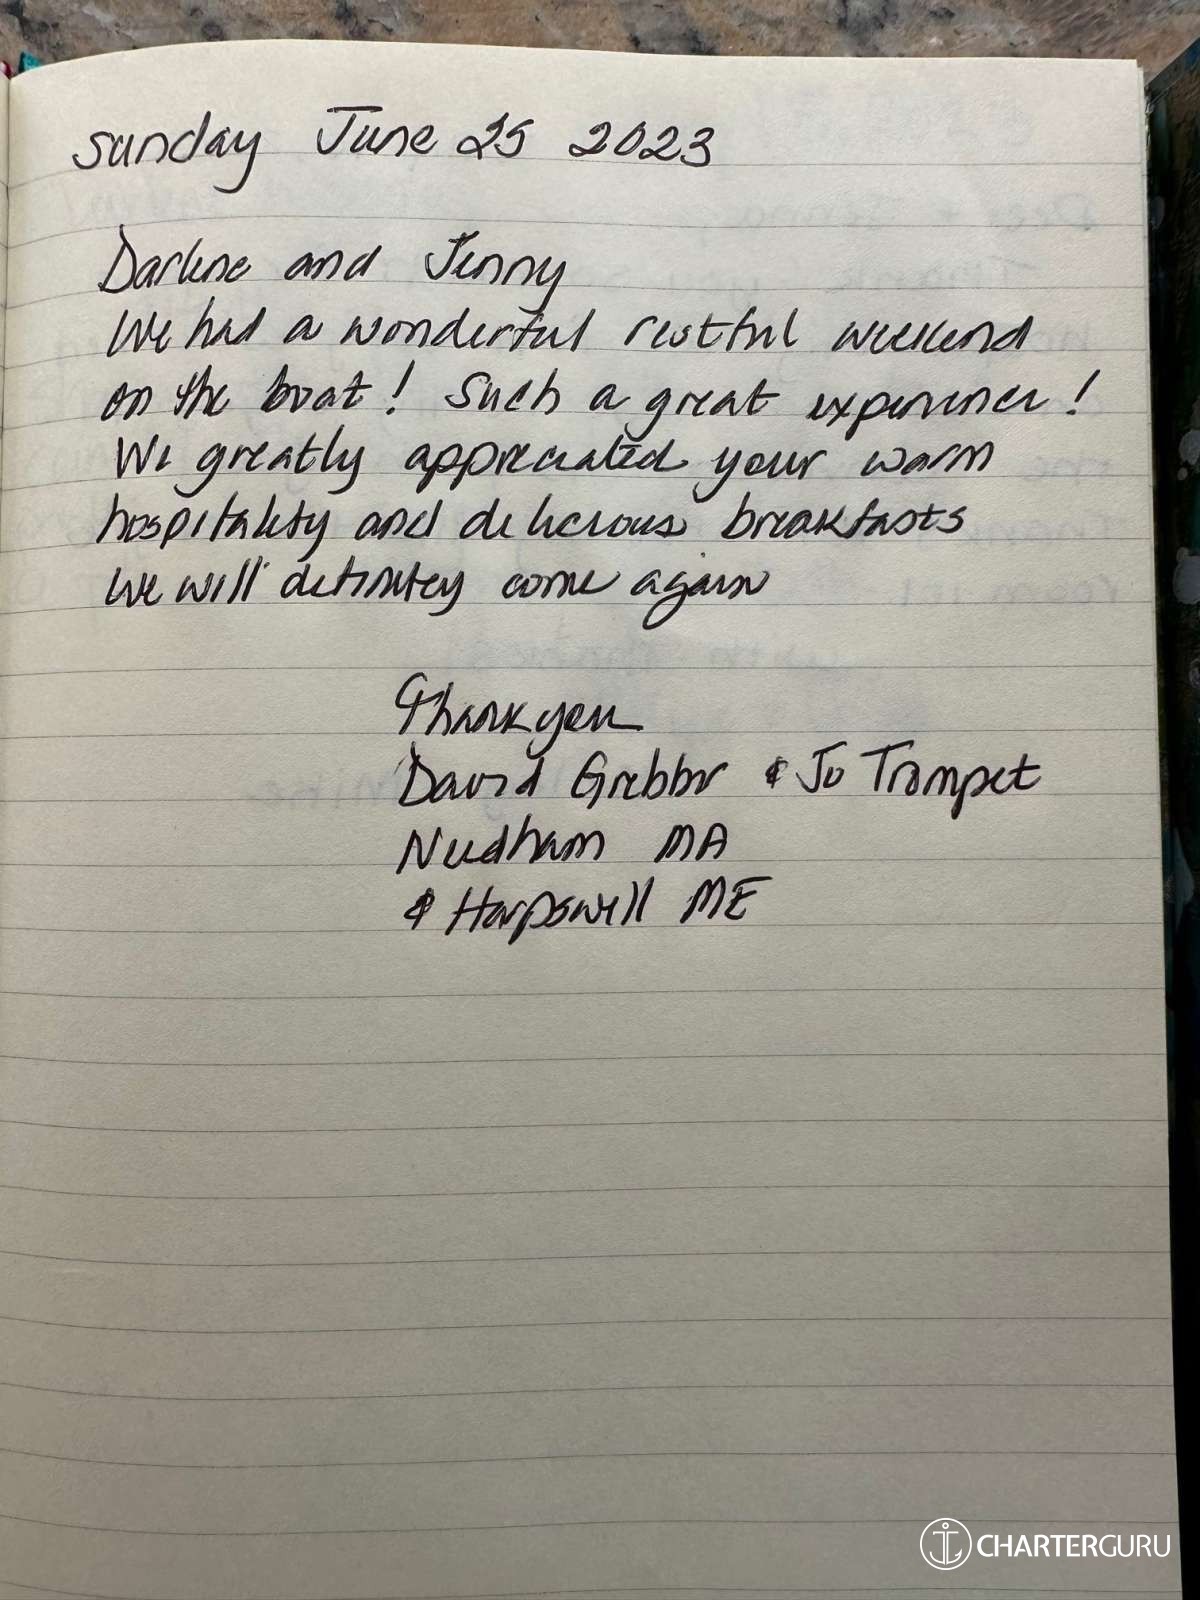 Sunday June 25 2023
Darlene and Jenny
We had a wonderful restful weekend
on the boat! Such a great experience!
We greatly appreciated your warm
hospitality and delicious breakfasts
We will definitey come again
Thank you
David Grebber & Jo Trompet
Needham MA
& Harpswell ME
CHARTERGURU